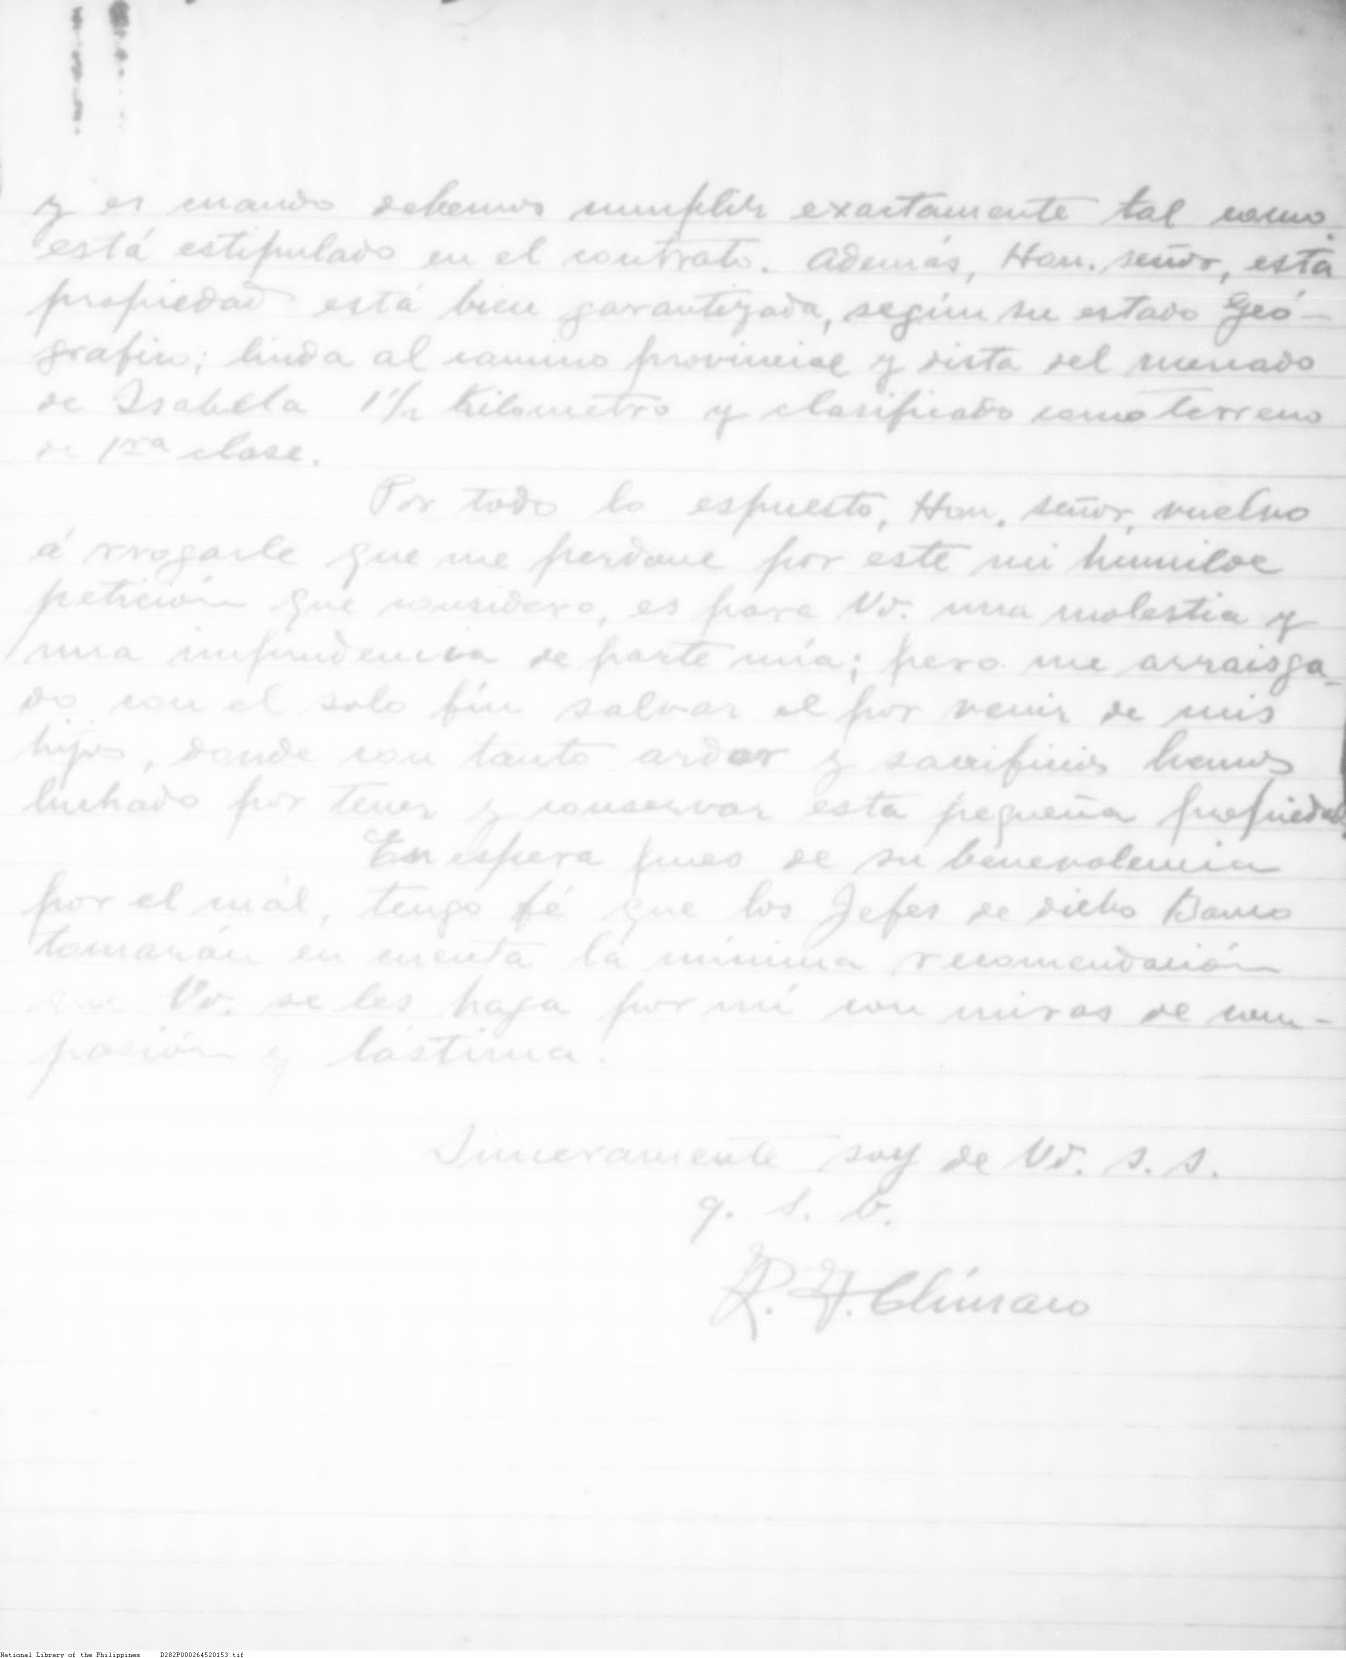 y es cuando debemos cumplir exactamente tal como
está estipulado en el contrato. Además, Hon. señor, esta
propiedad está bien garantizada, según su estado Geó-
grafico; linda al camino provincial y dista del mercado
de Isabela 1 1/2 Kilometro y clasificado como terreno
de 1ra clase.
Por todo lo espuesto, Hon. señor, vuelvo
á rrogarle que me perdone por este mi humilde
petición que considero, es para Vd. una molestia y
una imprudencia de parte mía; pero me arraisga-
do con el solo fin salvar el por venir de mis
hijos, donde con tanto ardor y sacrificios hemos
luchado por tener y conservar esta pequeña propiedad.
En espera pues de su benevolencia
por el cuál, tengo fé que los Jefes de dicho Banco
tomarán en cuenta la mínima recomendación
que Vd. se les haga por mí con miras de com-
pasión y lástima.
Sinceramente soy de Vd. S. S.
q. s. b.
National Library of the Philippines D282P000264520153.tif